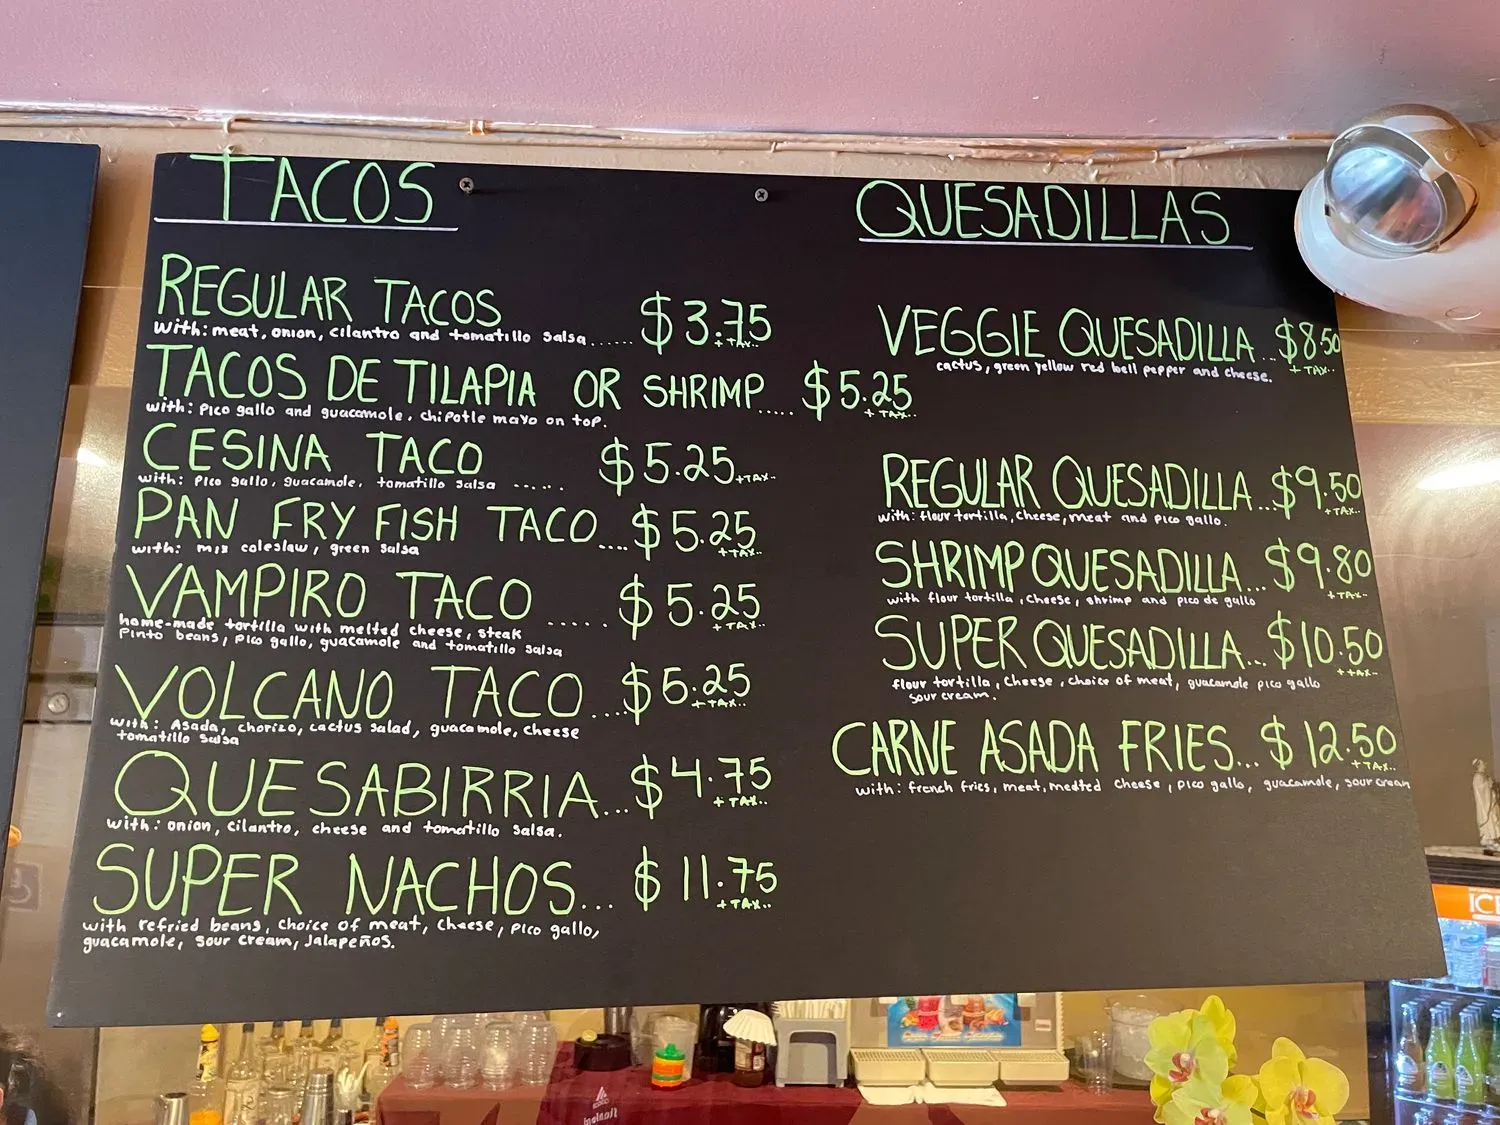 TACOS
REGULAR TACOS ...... $3.75
+ TAX..
with: meat, onion, cilantro and tomatillo salsa
TACOS DE TILAPIA OR SHRIMP ..... $5.25
+ TAX..
with: pico gallo and guacamole, chipotle mayo on top.
CESINA TACO ...... $5.25
+TAX..
with: pico gallo, guacamole, tomatillo salsa
PAN FRY FISH TACO .... $5.25
+TAX..
with: mix coleslaw, green salsa
VAMPIRO TACO ...... $5.25
+ TAX..
home-made tortilla with melted cheese, steak
pinto beans, pico gallo, guacamole and tomatillo salsa
VOLCANO TACO ... $5.25
+TAX..
with: Asada, chorizo, cactus salad, guacamole, cheese
tomatillo salsa
QUESABIRRIA... $4.75
+ TAX..
with: onion, cilantro, cheese and tomatillo salsa.
SUPER NACHOS... $11.75
+ TAX..
with refried beans, choice of meat, cheese, pico gallo,
guacamole, sour cream, jalapeños.
QUESADILLAS
VEGGIE QUESADILLA ... $8.50
+ TAX..
cactus, green yellow red bell pepper and cheese.
REGULAR QUESADILLA ... $9.50
+TAX..
with: flour tortilla, cheese, meat and pico gallo.
SHRIMP QUESADILLA... $9.80
+TAX..
with flour tortilla, cheese, shrimp and pico de gallo
SUPER QUESADILLA... $10.50
++TAX..
flour tortilla, cheese, choice of meat, guacamole pico gallo
sour cream.
CARNE ASADA FRIES... $12.50
+TAX..
with: french fries, meat, medted cheese, pico gallo, guacamole, sour cream
ICE